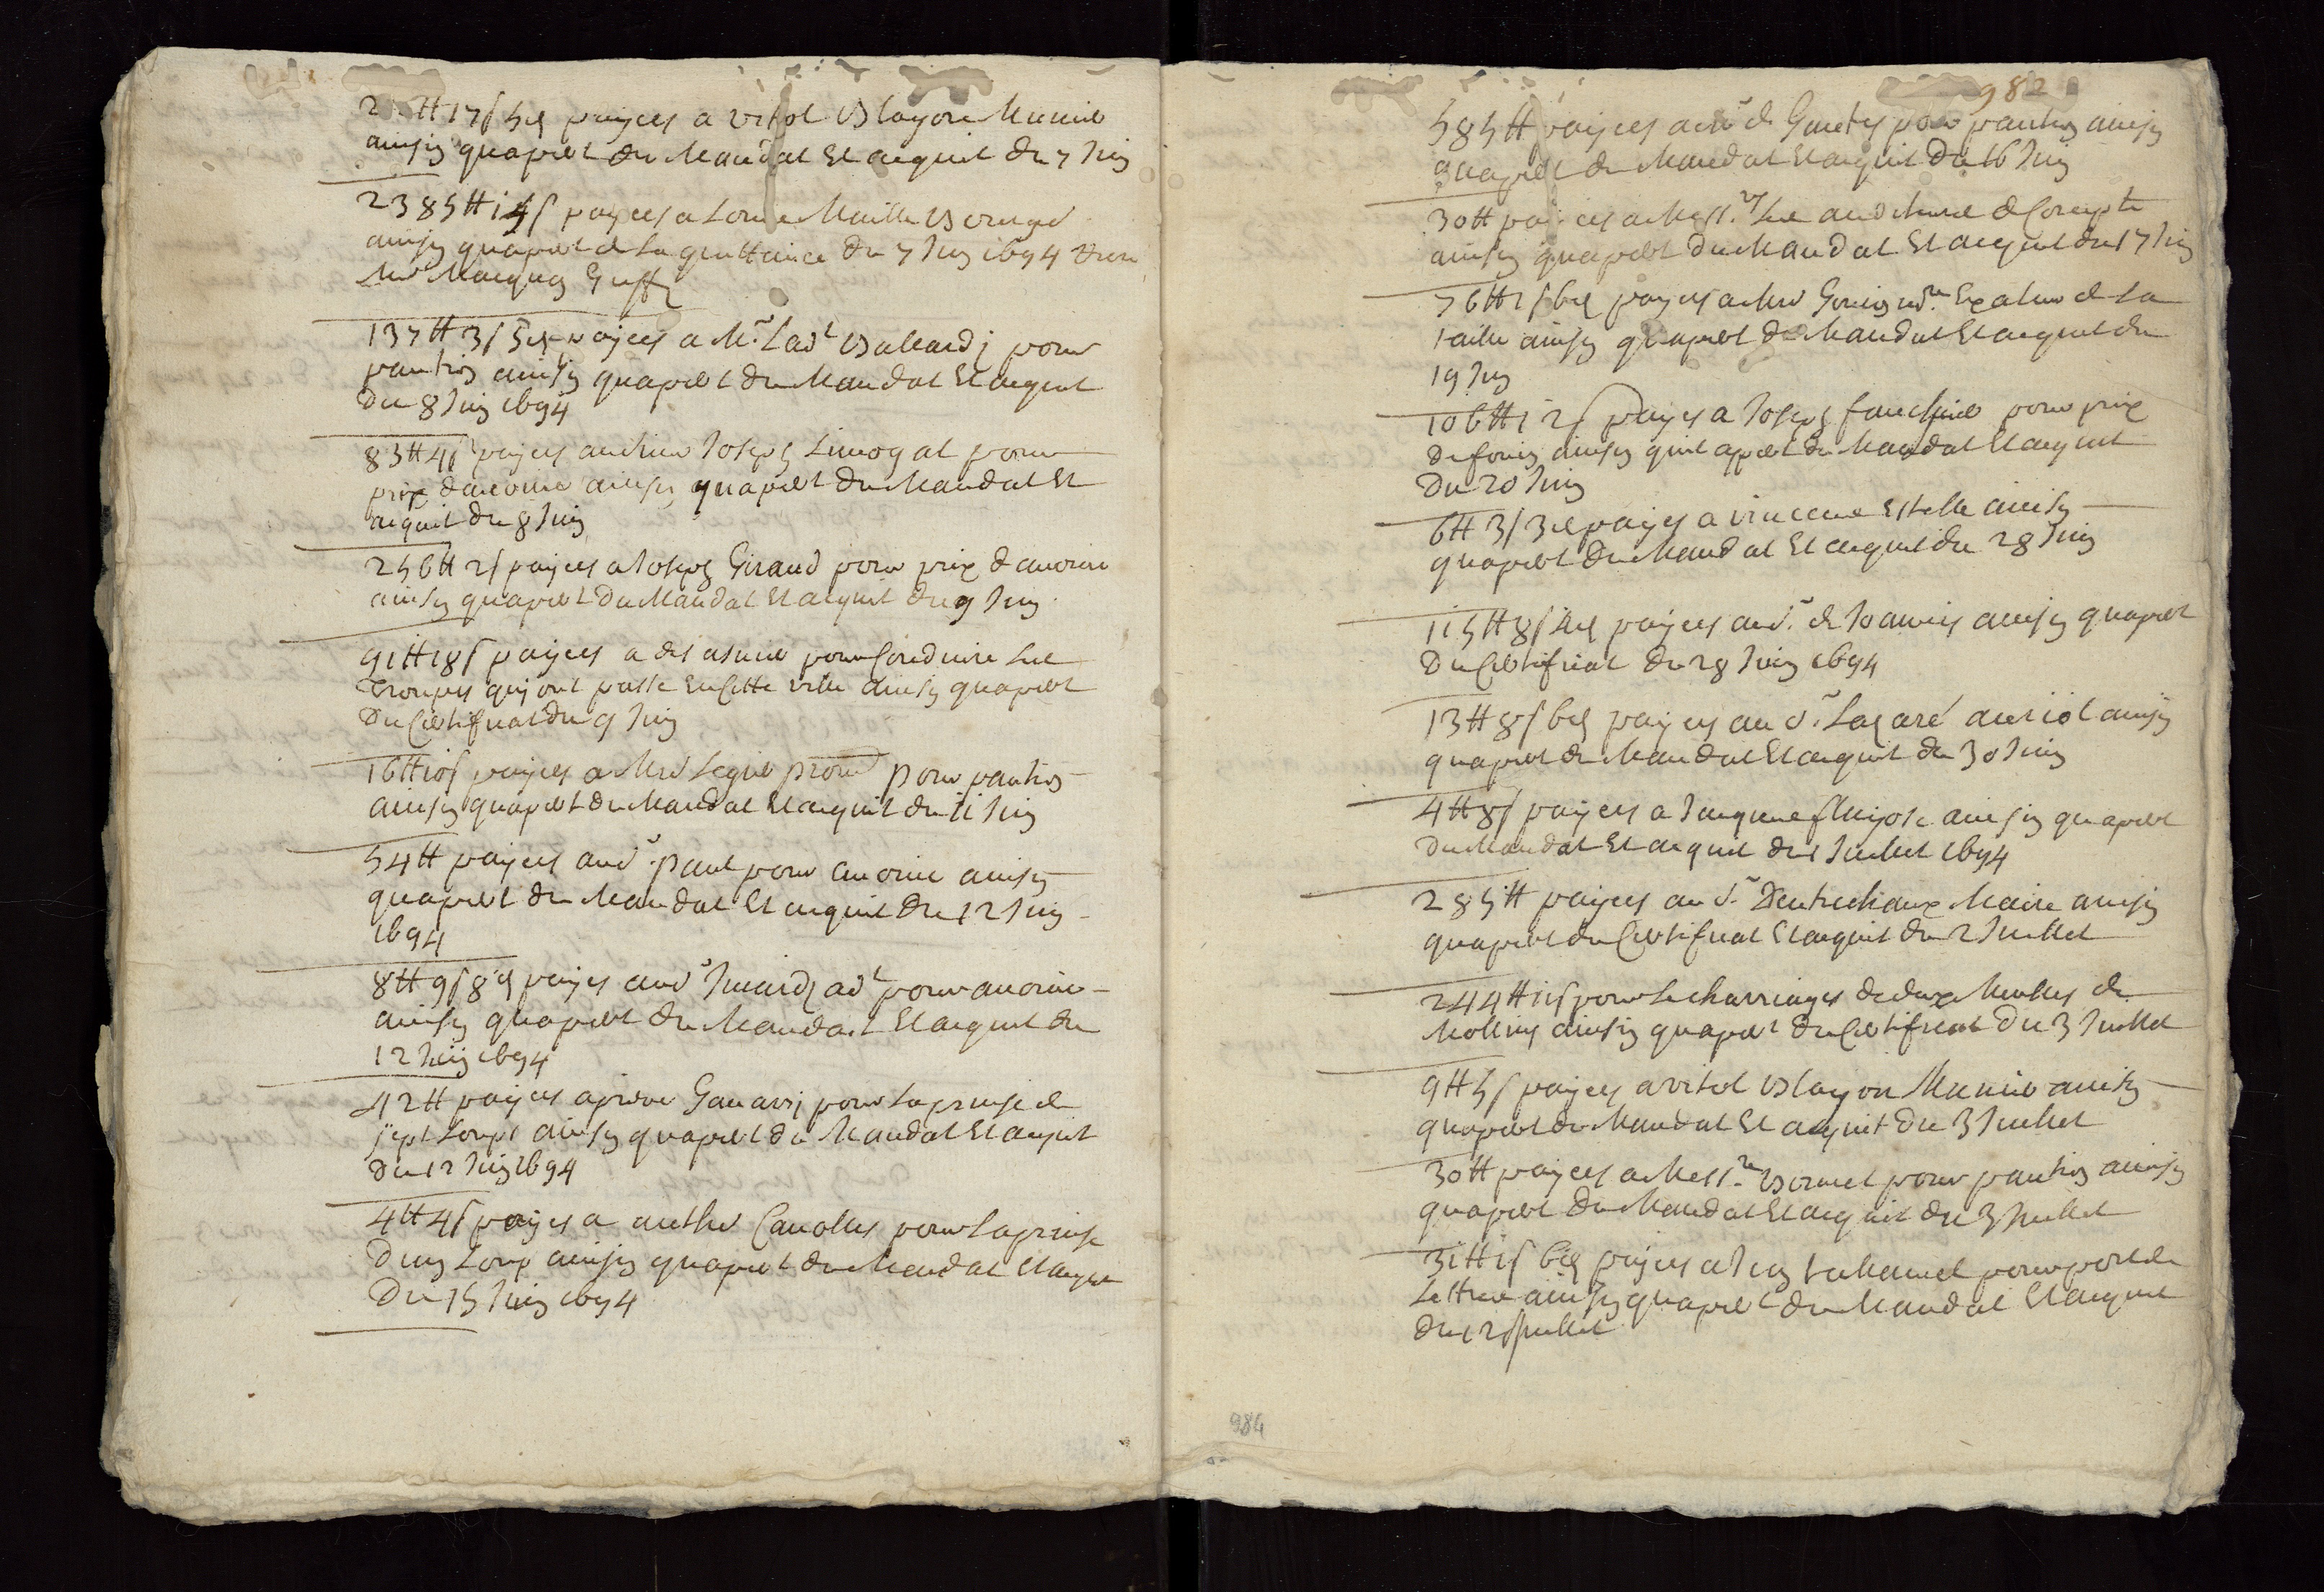 17s 5d payees a vital Blayon Munier
ainsin quapert du Mandat Et acquit du 7 Juin
2385lt 14s payees a Maille
ainsin quapert de La quittance du 7 Juin 1694
Greffr
137lt 3s 5d payees a Mr Ladt pour
pantion ainsin quapert du Mandat Et acquit
Du 8 Juin 1694
83lt 4s payees au sieur Joseph Limogat pour
prix davoine ainsin quapert du Mandat Et
acquit du 8 Juin
256lt 2s payees a Joseph Giraud pour prix davoine
ainsin quapert Du Mandat Et acquit du 9 Juin
91lt 18s payees a des asnier pour Conduire Les
Troupes quj ont passe En Cette ville ainsin quapert
Du Certifficat du 9 Juin
16lt 10s payees a Pour pantion
ainsin quapert du Mandat Et acquit du 11 Juin
54lt payees au Sr Paul pour avoine ainsin
quapert du Mandat Et acquit du 12 Juin
1694
8lt 9s 8d payes au Sr adt pour avoine
ainsin quapert du Mandat Et acquit du
12 Juin 1694
42lt payees a pierre pour La prinse de
sept Loups ainsin quapert du Mandat Et acquit
Du 12 Juin 1694
4lt 4s payes a Canolles pour La prinse
Dun Loup ainsin quapert du Mandat Et acquit
Du 15 Juin 1694
982
585lt payees au Sr de pour pantion ainsin
quapert du Mandat Et acquit Du 16 Juin
30lt payees a Messrs Les de Compte
ainsin quapert du Mandat Et acquit du 17 Juin
payees a de La
taille ainsin quapert du Mandat Et acquit du
19 Juin
106lt 12s payes a Joseph fauchier pour prix
De foin ainsin quil appert du Mandat Et acquit
Du 20 Juin
6lt 3s 3d payes a vincens Estelle ainsin
quapert Du Mandat Et acquit du 28 Juin
115lt 8s 4d payees au Sr de Joannis ainsin quapert
Du Certifficat du 28 Juin 1694
13lt 8s 6d payees au Sr Lazare auriol ainsin
quapert du Mandat Et acquit du 30 Juin
4lt 8s payees a Jacques ainsin quapert
Du Mandat Et acquit du 1 Juillet 1694
285lt payees au Sr Dentrechaux Maire ainsin
quapert du Certifficat Et acquit du 2 Juillet
244lt 11s pour Le charriages de deux Meulles de
Mollins ainsin quapert du Certifficat Du 3 Juillet
9lt 5s payees a vital Blayon Munier ainsin
quapert du Mandat Et acquit Du 3 Juillet
30lt payees a Messre pour pantion ainsin
quapert Du Mandat Et acquit du 3 Juillet
31lt 1s 6d payees a Jean pour port de
Lettres ainsin quapert du Mandat Et acquit
du 12 Juillet
984